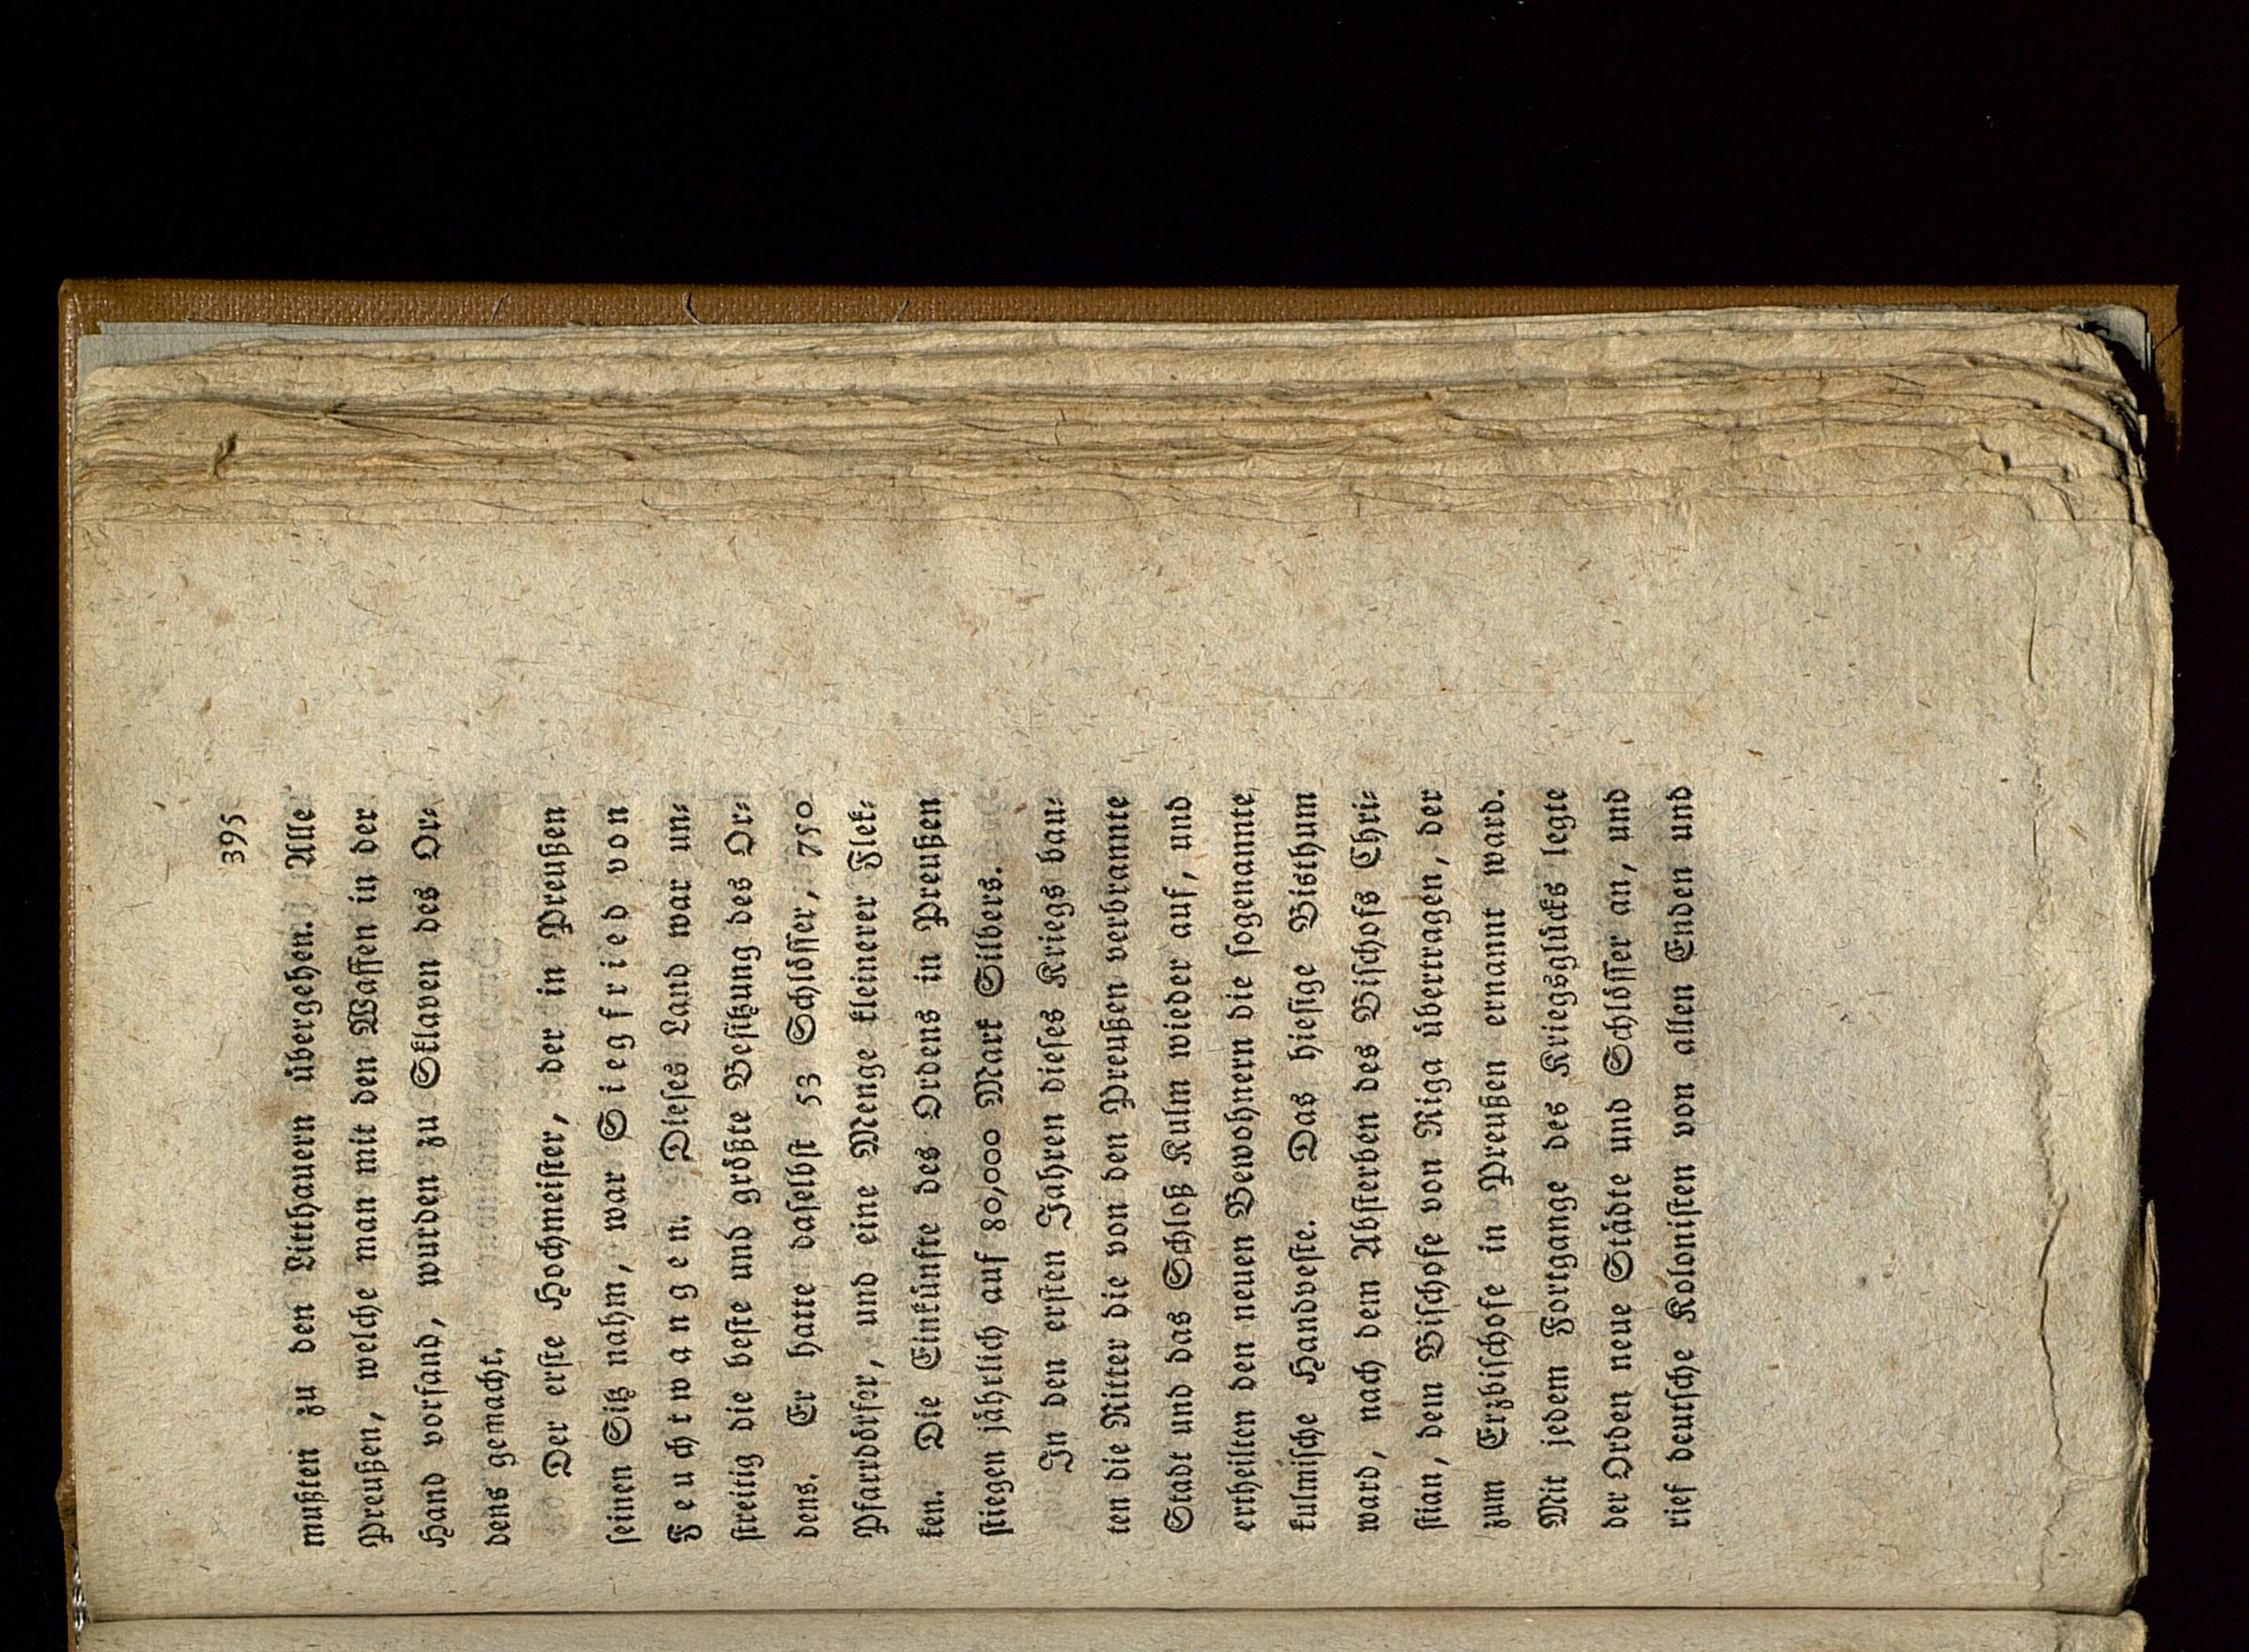 395
mußten zu den Litthauern übergehen. Alle
Preußen, welche man mit den Waffen in der
Hand vorfand, wurden zu Sklaven des Or⸗
dens gemacht.
Der erste Hochmeister, der in Preußen
seinen Sitz nahm, war Siegfried von
Feuchtwangen. Dieses Land war un⸗
streitig die beste und größte Besitzung des Or⸗
dens. Er hatte daselbst 53 Schlösser, 750
Pfarrdörfer, und eine Menge kleinerer Flek⸗
ken. Die Einkünfte des Ordens in Preußen
stiegen jährlich auf 80,000 Mark Silbers.
In den ersten Jahren dieses Kriegs bau⸗
ten die Ritter die von den Preußen verbrannte
Stadt und das Schloß Kulm wieder auf, und
ertheilten den neuen Bewohnern die sogenannte
kulmische Handveste. Das hiesige Bisthum
ward, nach dem Absterben des Bischofs Chri⸗
stian, dem Bischofe von Riga übertragen, der
zum Erzbischofe in Preußen ernannt ward.
Mit jedem Fortgange des Kriegsglücks legte
der Orden neue Städte und Schlösser an, und
rief deutsche Kolonisten von allen Enden und